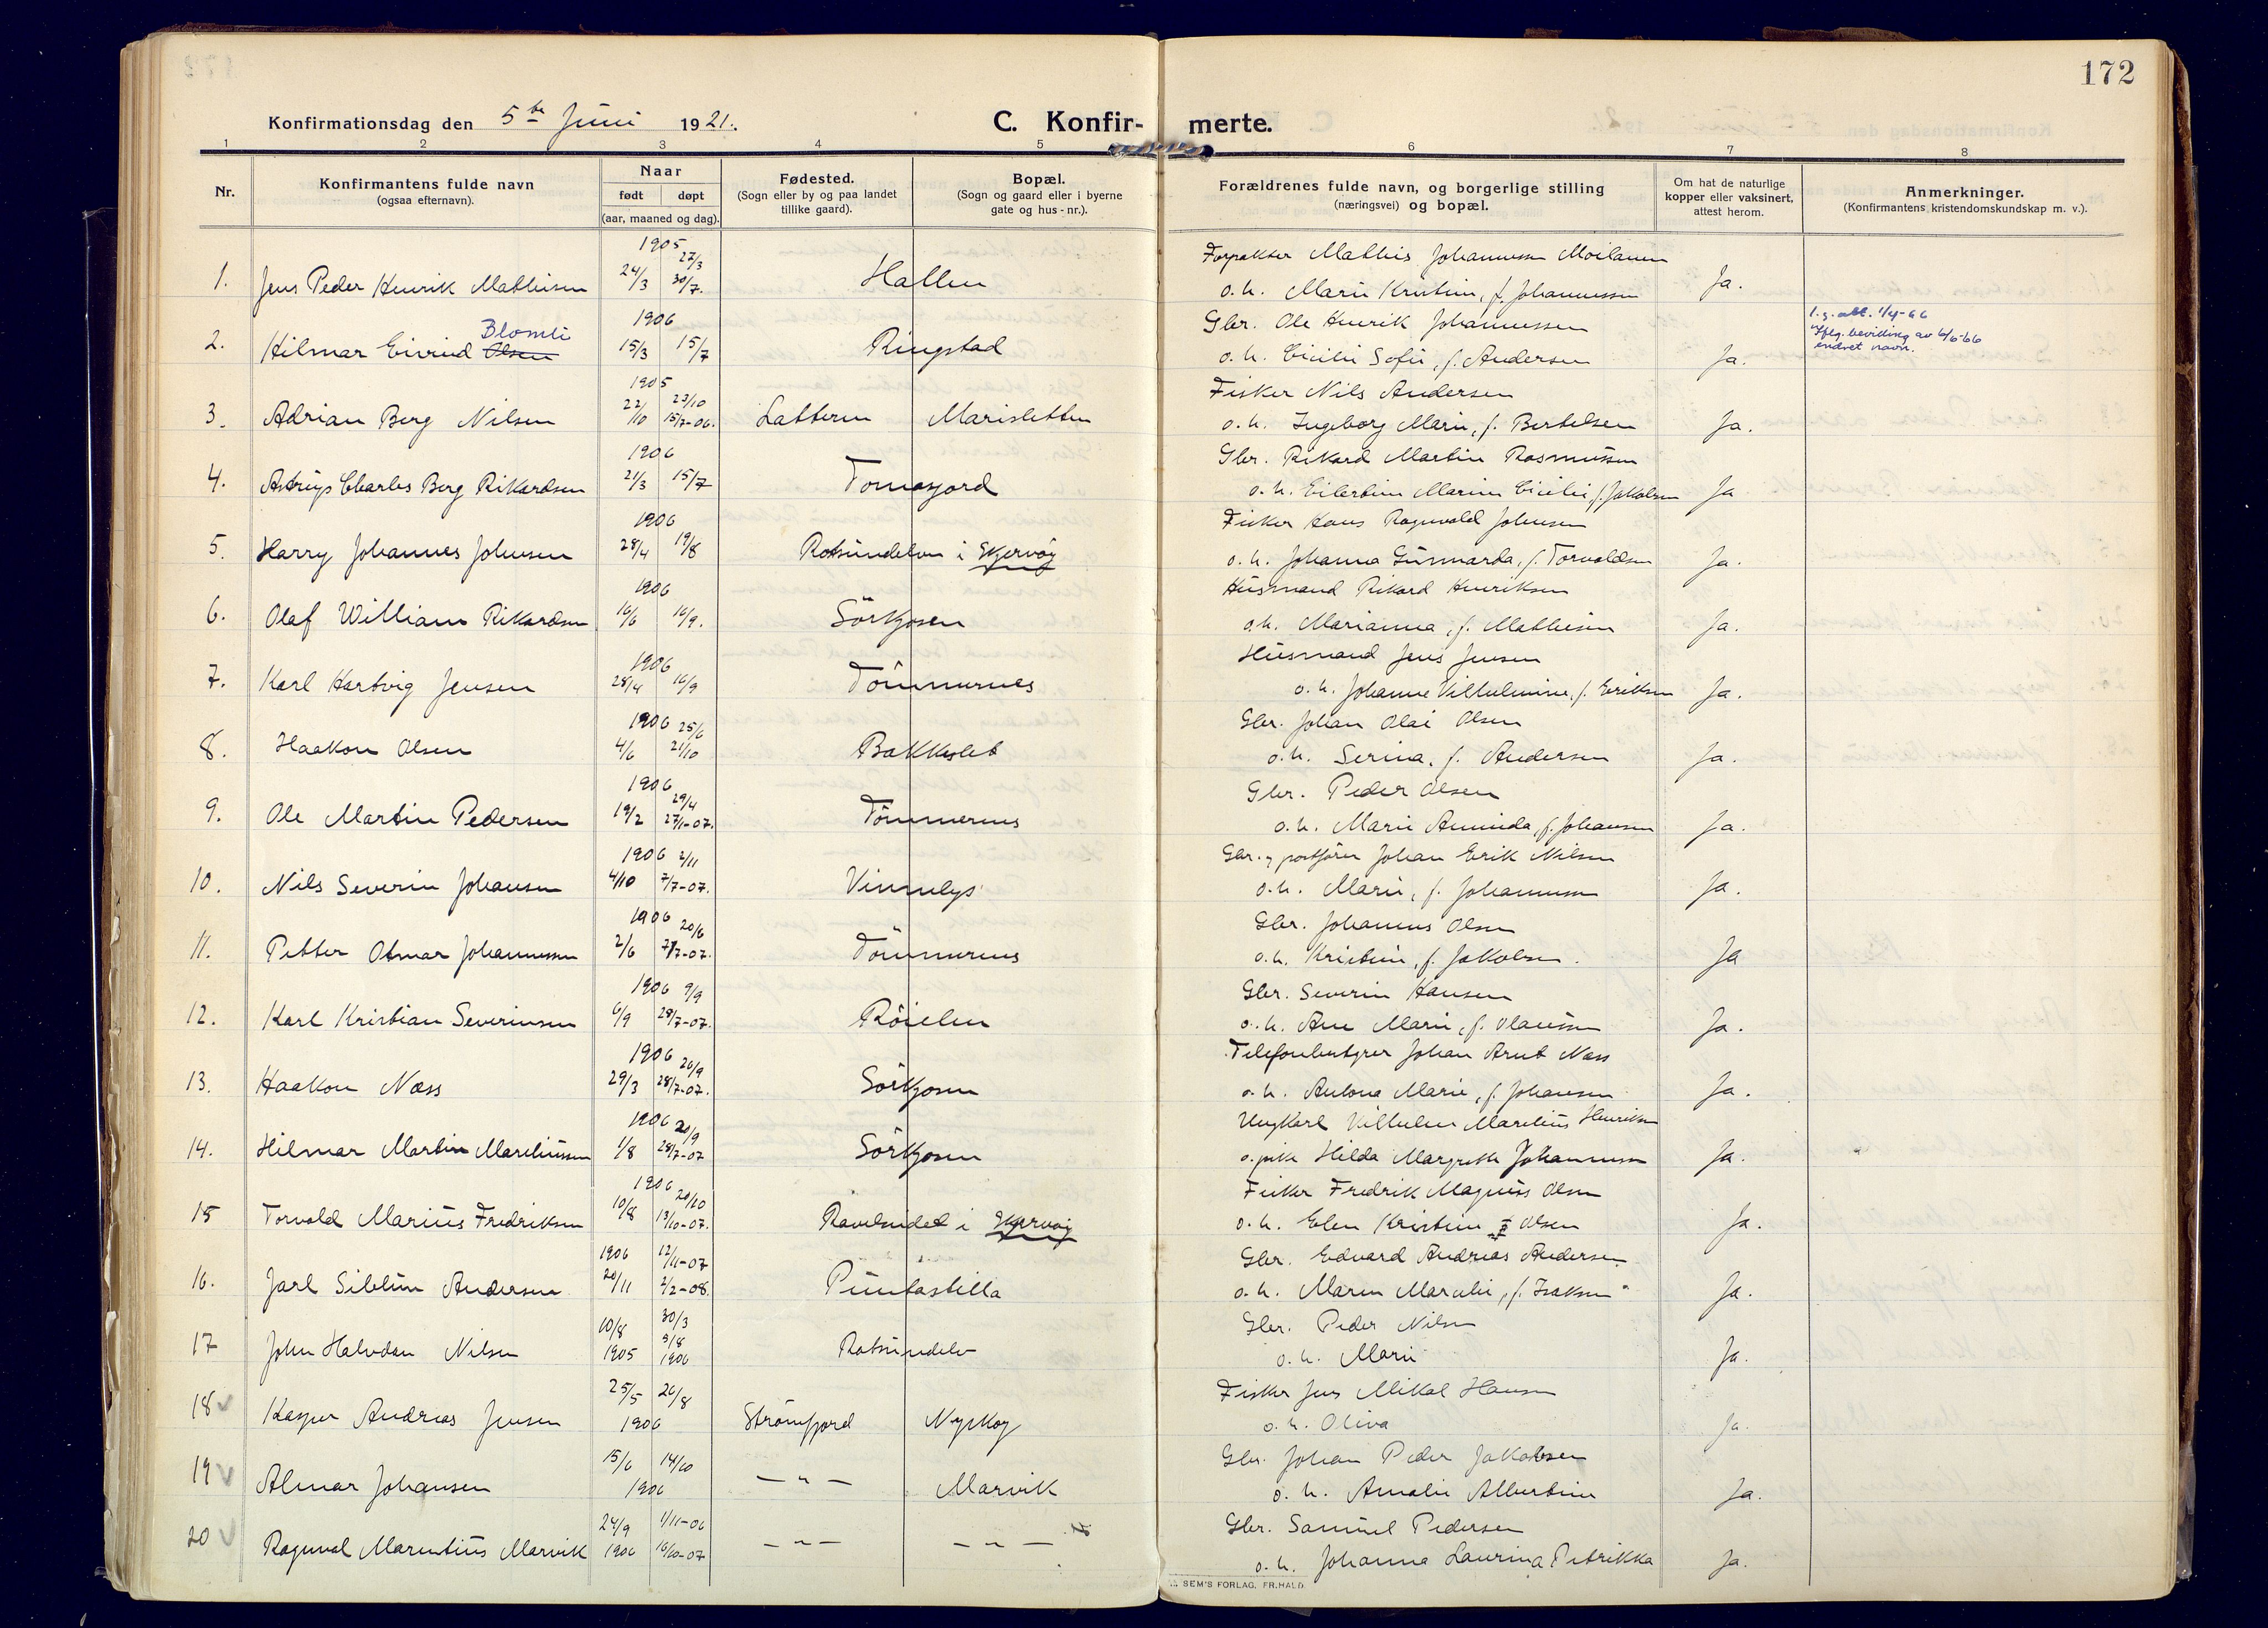 172
Konfirmationsdag den 5te Juni 1921.
C. Konfir- merte.
1 2 3 4 5 6 7 8
Nr.
Konfirmantens fulde navn
(ogsaa efternavn).
Naar
født døpt
(aar, maaned og dag).
Fødested.
(Sogn eller by og paa landet
tillike gaard).
Bopæl.
(Sogn og gaard eller i byerne
gate og hus-nr.).
Forældrenes fulde navn, og borgerlige stilling
(næringsvei) og bopæl.
Om hat de naturlige
kopper eller vaksinert,
attest herom.
Anmerkninger.
(Konfirmantens kristendomskundskap m. v.).
1905 27/3 Forpakter Mathis Johannessen Moilanen
1. Jens Peder Henrik Mathisen 24/3 30/7. Hallen o. h. Marie Kristine, f. Johannessen Ja.
Blomli 1906 Gbr. Ole Henrik Johannessen l.g. att. 1/4-66
2. Hilmar Eivind Olsen 15/3 15/7 Ringstad o. h. Cicilie Sofie, f. Andersen Ja. Iflg. bevilling av 6/6-66
endret navn.
1905 23/10 Fisker Nils Andersen
3. Adrian Berg Nilsen 22/10 15/7-06. Latteren Marisletten o. h. Ingeborg Marie, f. Bertelsen Ja.
1906 Gbr. Rikard Martin Rasmussen
4. Charles Berg Rikardsen 21/3 15/7 Tomasjord o. h. Eilertine Marine Cicilie, f. Jakobsen Ja
1906 Fisker Hans Ragnvald Johnsen
5. Harry Johannes Johnsen 28/4 19/8 Rotsundelven i Skjervøy o. h. Johanna Gunnarda, f. Torvaldsen Ja.
1906 Husmand Rikard Henriksen
6. Olaf William Rikardsen 16/6 16/9. Sörkjosen o.h. Marianna, f. Mathisen Ja.
1906 Husmand Jens Jensen
7. Karl Hartvig Jensen 28/4 16/9 Tömmernes o. h. Johanne Vilhelmine, f. Eriksen Ja.
1906 25/6 Gbr. Johan Olai Olsen
8. Haakon Olsen 4/6 21/10 Bakkeslet o. h. Serina, f. Andersen Ja.
1906 29/4 Gbr. Peder Olsen
9. Ole Martin Pedersen 19/2 27/1-07. Tömmernes o. h. Marie Aminda, f. Johansen Ja.
1906 2/11 Gbr. og postfører Johan Erik Nilsen
10. Nils Severin Johansen 4/10 7/7-07. Vinnelys o. h. Marie, f. Johannessen Ja.
1906 20/6 Gbr. Johannes Olsen
11. Petter Otmar Johannessen 2/6 7/7-07. Tömmernes o. h. Kristine, f. Jakobsen. Ja
1906 9/9 Gbr. Severin Hansen
12. Karl Kristian Severinsen 6/9 28/7-07. Röielen o. h. Ane Marie, f. Olaussen Ja.
1906 26/9 Telefonbestyrer Johan Arnt Næss
13. Haakon Næss 29/3 28/7-07. Sörkjosen o. h. Antona Marie, f. Johansen Ja.
1906 20/9 Ungkarl Vilhelm Marelius Henriksen
14. Hilmar Martin Mareliussen 1/8 28/7-07 Sörkjosen o. pike Hilda Margrethe Johannessen Ja.
1906 20/10 Fisker Fredrik Magnus Olsen
15 Torvald Marius Fredriksen 10/8 13/10-07. Ravelseidet i Skjervøy o. h. Elen Kristine f. Olsen Ja.
1906 12/11-07 Gbr. Edvard Andreas Andersen
16. Jarl Andersen 20/11 2/2-08. Puntastilla o. h. Maren Marelie, f. Isaksen Ja.
10/8 30/3 Gbr. Peder Nilsen
17 John Halvdan Nilsen 1905 9/8 1906 Rotsundelv o. h. Marie Ja.
25/5 26/8 Fisker Jens Mikal Hansen
18 Kasper Andreas Jensen 1906 Strömfjord Nyskog o. h. Oliva Ja.
15/6 14/10 Gbr. Johan Peder Jakobsen
19 Almar Johansen 1906 — „ — Marvik o. h. Amalie Albertine Ja.
24/9 1/11-06 Gbr. Samuel Pedersen
20 Ragnval Marentius Marvik 1906 16/10-07 — „ — — „ — o. h. Johanna Laurina Petrikka Ja.
SEM'S FORLAG, FR.HALD.